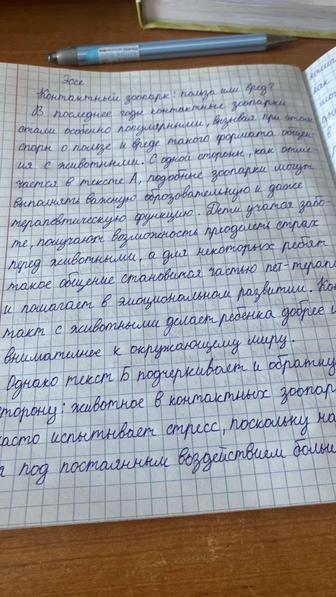 Эссе
Контактный зоопарк: польза или вред?
В последнее годы контактные зоопарки
стали особенно популярными, вызывая при этом
споры о пользе и вреде такого формата общен-
ия с животными. С одной стороны, как отме-
чается в тексте А, подобные зоопарки могут
выполнять важную образовательную и даже
терапевтическую функцию. Дети учатся забо-
те, получают возможность преодолеть страх
перед животными, а для некоторых ребят
такое общение становится частью пет-терапи
и помогает в эмоциональном развитии. Кон
такт с животными делает ребенка добрее и
внимательнее к окружающему миру.
Однако текст Б подчеркивает и обратну
сторону: животное в контактных зоопар
часто испытывает стресс, поскольку на
я под постоянным воздействием больш